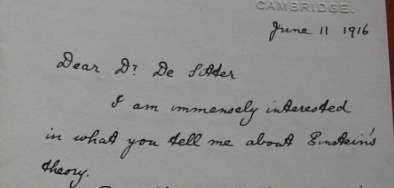 CAMBRIDGE.
June 11 1916
Dear Dr De Sitter
I am immensely interested
in what you tell me about Einstein's
theory.